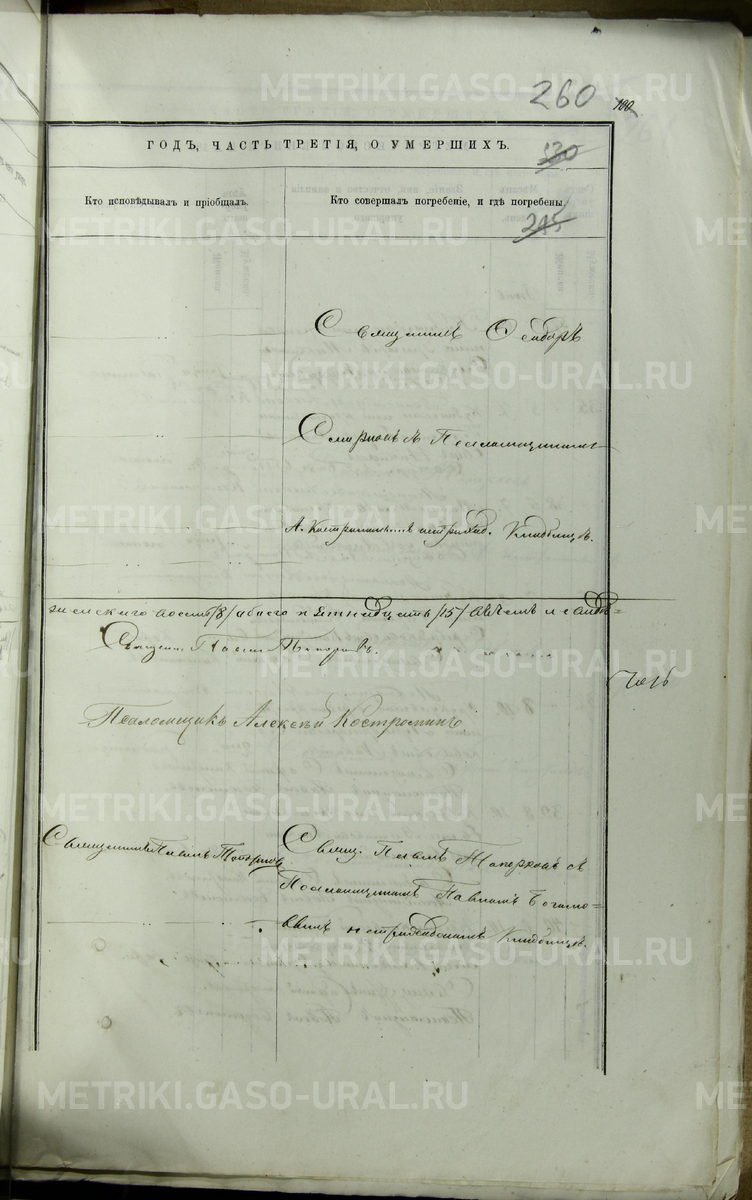 260 102
ГОДЪ, ЧАСТЬ ТРЕТІЯ, О УМЕРШИХЪ.
530
Кто исповѣдывалъ и пріобщалъ.
Кто совершалъ погребеніе, и гдѣ погребены.
245
Священникъ Ѳеодоръ
Смирновъ Псаломщикомъ
А. Костроминымъ на приход. Кладбищѣ.
женскаго восемь /8/ обоего пятнадцать /15/
Священ. Топорковъ.
Псаломщикъ Алексѣй Костроминъ
Священникъ Павелъ Топорковъ
Свящ. Павелъ Топорковъ съ
Псаломщикомъ Павломъ Богомо-
вымъ на приходскомъ Кладбищѣ.
METRIKI.GASO-URAL.RU